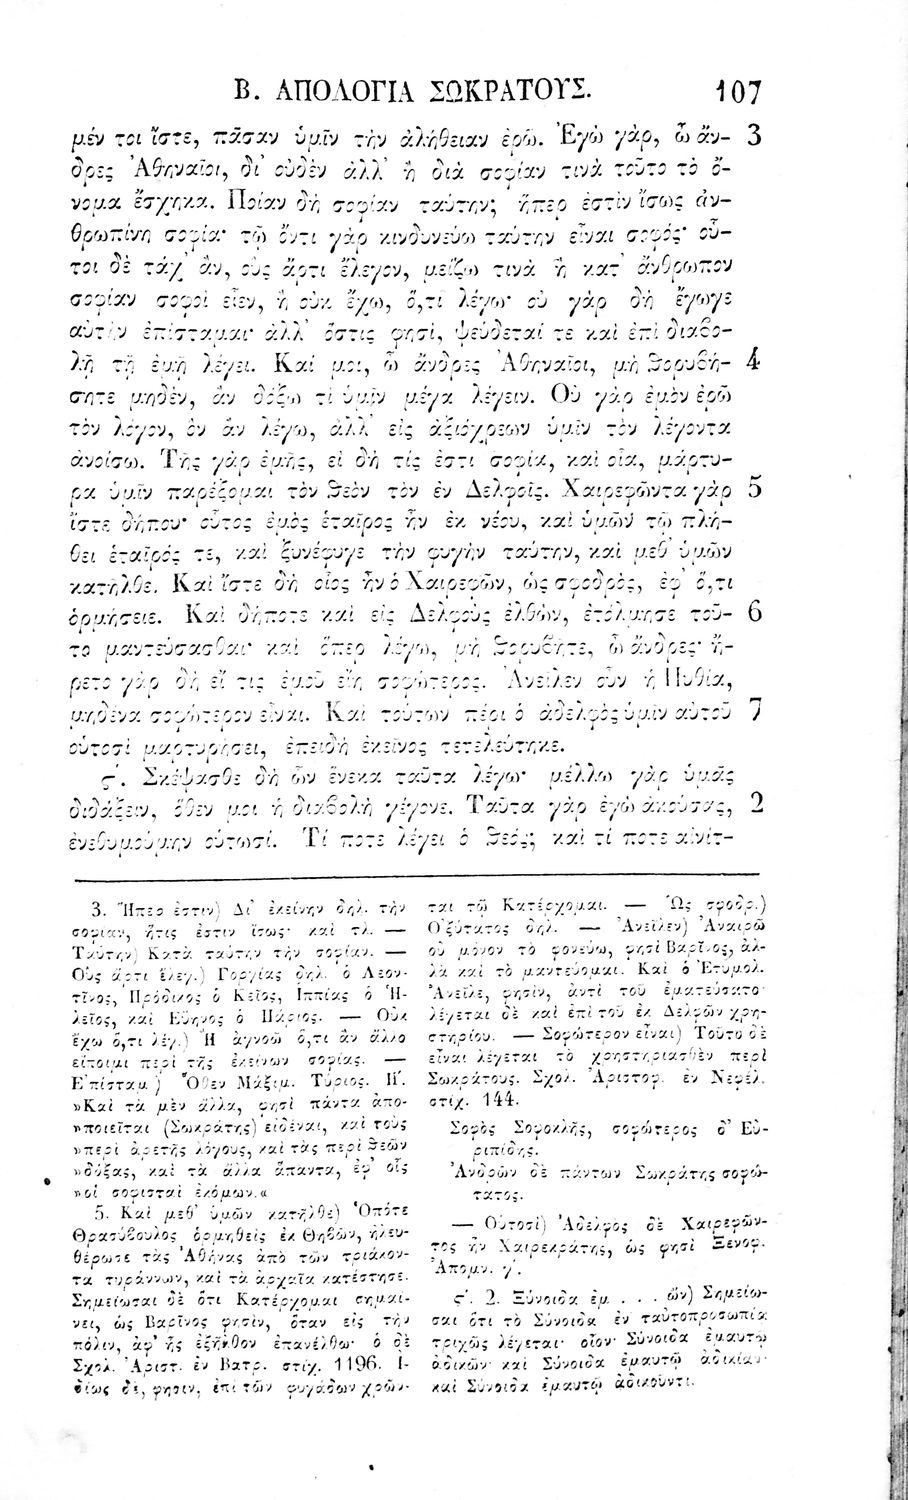 Β. ΑΠΟΛΟΓΙΑ ΣΩΚΡΑΤΟΥΣ. 107
μέν τοι ἴστε, πᾶσαν ὑμῖν τὴν ἀλήθειαν ἐρῶ. Ἐγὼ γὰρ, ὦ ἄν- 3
δρες Ἀθηναῖοι, δι' οὐδὲν ἀλλ' ἢ διὰ σοφίαν τινὰ τοῦτο τὸ ὄ-
νομα ἔσχηκα. Ποίαν δὴ σοφίαν ταύτην; ἥπερ ἐστὶν ἴσως ἀν-
θρωπίνη σοφία· τῷ ὄντι γὰρ κινδυνεύω ταύτην εἶναι σοφός· οὗ-
τοι δὲ τάχ' ἂν, οὓς ἄρτι ἔλεγον, μείζω τινὰ ἢ κατ' ἄνθρωπον
σοφίαν σοφοὶ εἶεν, ἢ οὐκ ἔχω, ὅ,τι λέγω· οὐ γὰρ δὴ ἔγωγε
αὐτὴν ἐπίσταμαι· ἀλλ' ὅστις φησὶ, ψεύδεταί τε καὶ ἐπὶ διαβο-
λῇ τῇ ἐμῇ λέγει. Καί μοι, ὦ ἄνδρες Ἀθηναῖοι, μὴ θορυβή- 4
σητε μηδὲν, ἂν δόξω τὶ ὑμῖν μέγα λέγειν. Οὐ γὰρ ἐμὸν ἐρῶ
τὸν λόγον, ὃν ἂν λέγω, ἀλλ' εἰς ἀξιόχρεων ὑμῖν τὸν λέγοντα
ἀνοίσω. Τῆς γὰρ ἐμῆς, εἰ δή τίς ἐστι σοφία, καὶ οἵα, μάρτυ-
ρα ὑμῖν παρέξομαι τὸν θεὸν τὸν ἐν Δελφοῖς. Χαιρεφῶντα γὰρ 5
ἴστε δήπου· οὗτος ἐμὸς ἑταῖρος ἦν ἐκ νέου, καὶ ὑμῶν τῷ πλή-
θει ἑταῖρός τε, καὶ ξυνέφυγε τὴν φυγὴν ταύτην, καὶ μεθ' ὑμῶν
κατῆλθε. Καὶ ἴστε δὴ οἷος ἦν ὁ Χαιρεφῶν, ὡς σφοδρὸς, ἐφ' ὅ,τι
ὁρμήσειε. Καὶ δήποτε καὶ εἰς Δελφοὺς ἐλθὼν, ἐτόλμησε τοῦ- 6
το μαντεύσασθαι· καὶ ὅπερ λέγω, μὴ θορυβῆτε, ὦ ἄνδρες· ἤ-
ρετο γὰρ δὴ εἴ τις ἐμοῦ εἴη σοφώτερος. Ἀνεῖλεν οὖν ἡ Πυθία,
μηδένα σοφώτερον εἶναι. Καὶ τούτων πέρι ὁ ἀδελφὸς ὑμῖν αὐτοῦ 7
οὑτοσὶ μαρτυρήσει, ἐπειδὴ ἐκεῖνος τετελεύτηκε.
ς'. Σκέψασθε δὴ ὧν ἕνεκα ταῦτα λέγω· μέλλω γὰρ ὑμᾶς
διδάξειν, ὅθεν μοι ἡ διαβολὴ γέγονε. Ταῦτα γὰρ ἐγὼ ἀκούσας, 2
ἐνεθυμούμην οὑτωσί. Τί ποτε λέγει ὁ θεός; καὶ τί ποτε αἰνίτ-
3. Ἥπερ ἐστιν) Δι' ἐκείνην δηλ. τὴν
σοφιαν, ἥτις ἐστιν ἴσως· καὶ τλ. —
Ταύτην) Κατὰ ταύτην τὴν σοφίαν. —
Οὓς ἄρτι ἔλεγ.) Γοργίας δηλ. ὁ Λεον-
τῖνος, Πρόδικος ὁ Κεῖος, Ἱππίας ὁ Ἠ-
λεῖος, καὶ Εὔηνος ὁ Πάριος. — Οὐκ
ἔχω ὅ,τι λέγ.) Ἢ ἀγνοῶ ὅ,τι ἂν ἄλλο
εἴποιμι περὶ τῆς ἐκείνων σοφίας. —
Ἐπίσταμ.) Ὅθεν Μάξιμ. Τύριος.
»Καὶ τὰ μὲν ἄλλα, φησὶ πάντα ἀπο-
»ποιεῖται (Σωκράτης) εἰδέναι, καὶ τοὺς
»περὶ ἀρετῆς λόγους, καὶ τὰς περὶ θεῶν
»δόξας, καὶ τὰ ἄλλα ἅπαντα, ἐφ' οἷς
»οἱ σοφισταὶ ἐκόμων.«
5. Καὶ μεθ' ὑμῶν κατῆλθε) Ὁπότε
Θρασύβουλος ὁρμηθεὶς ἐκ Θηβῶν, ἠλευ-
θέρωσε τὰς Ἀθήνας ἀπὸ τῶν τριάκον-
τα τυράννων, καὶ τὰ ἀρχαῖα κατέστησε.
Σημείωσαι δὲ ὅτι Κατέρχομαι σημαί-
νει, ὡς Βαρῖνος φησὶν, ὅταν εἰς τὴν
πόλιν, ἀφ' ἧς ἐξῆλθον ἐπανέλθω· ὁ δὲ
Σχολ. Ἀριστ. ἐν Βατρ. στίχ. 1196. Ἰ-
δίως δὲ, φησιν, ἐπὶ τῶν φυγάδων χρῶν-
ται τῷ Κατέρχομαι. — Ὡς σφοδρ.)
Ὀξύτατος δηλ. — Ἀνεῖλεν) Ἀναιρῶ
οὐ μόνον τὸ φονεύω, φησὶ Βαρῖνος, ἀλ-
λὰ καὶ τὸ μαντεύομαι. Καὶ ὁ Ἐτυμολ.
Ἀνεῖλε, φησὶν, ἀντὶ τοῦ ἐματεύσατο·
λέγεται δὲ καὶ ἐπὶ τοῦ ἐκ Δελφῶν χρη-
στηρίου. — Σοφώτερον εἶναι) Τοῦτο δὲ
εἶναι λέγεται τὸ χρηστηριασθὲν περὶ
Σωκράτους. Σχολ. Ἀριστοφ. ἐν Νεφέλ.
στίχ. 144.
Σοφὸς Σοφοκλῆς, σοφώτερος δ' Εὐ-
ριπίδης.
Ἀνδρῶν δὲ πάντων Σωκράτης σοφώ-
τατος.
— Οὑτοσὶ) Ἀδελφὸς δὲ Χαιρεφῶν-
τος ἦν Χαιρεκράτης, ὡς φησὶ Ξενοφ.
Ἀπομν. γ'.
ς'. 2. Ξύνοιδα ἐμ . . . . ὤν) Σημείω-
σαι ὅτι τὸ Σύνοιδα ἐν ταὐτοπροσωπίᾳ
τριχῶς λέγεται· οἷον· Σύνοιδα ἐμαυτῷ
ἀδικῶν· καὶ Σύνοιδα ἐμαυτῷ ἀδικίαν·
καὶ Σύνοιδα ἐμαυτῷ ἀδικοῦντι.